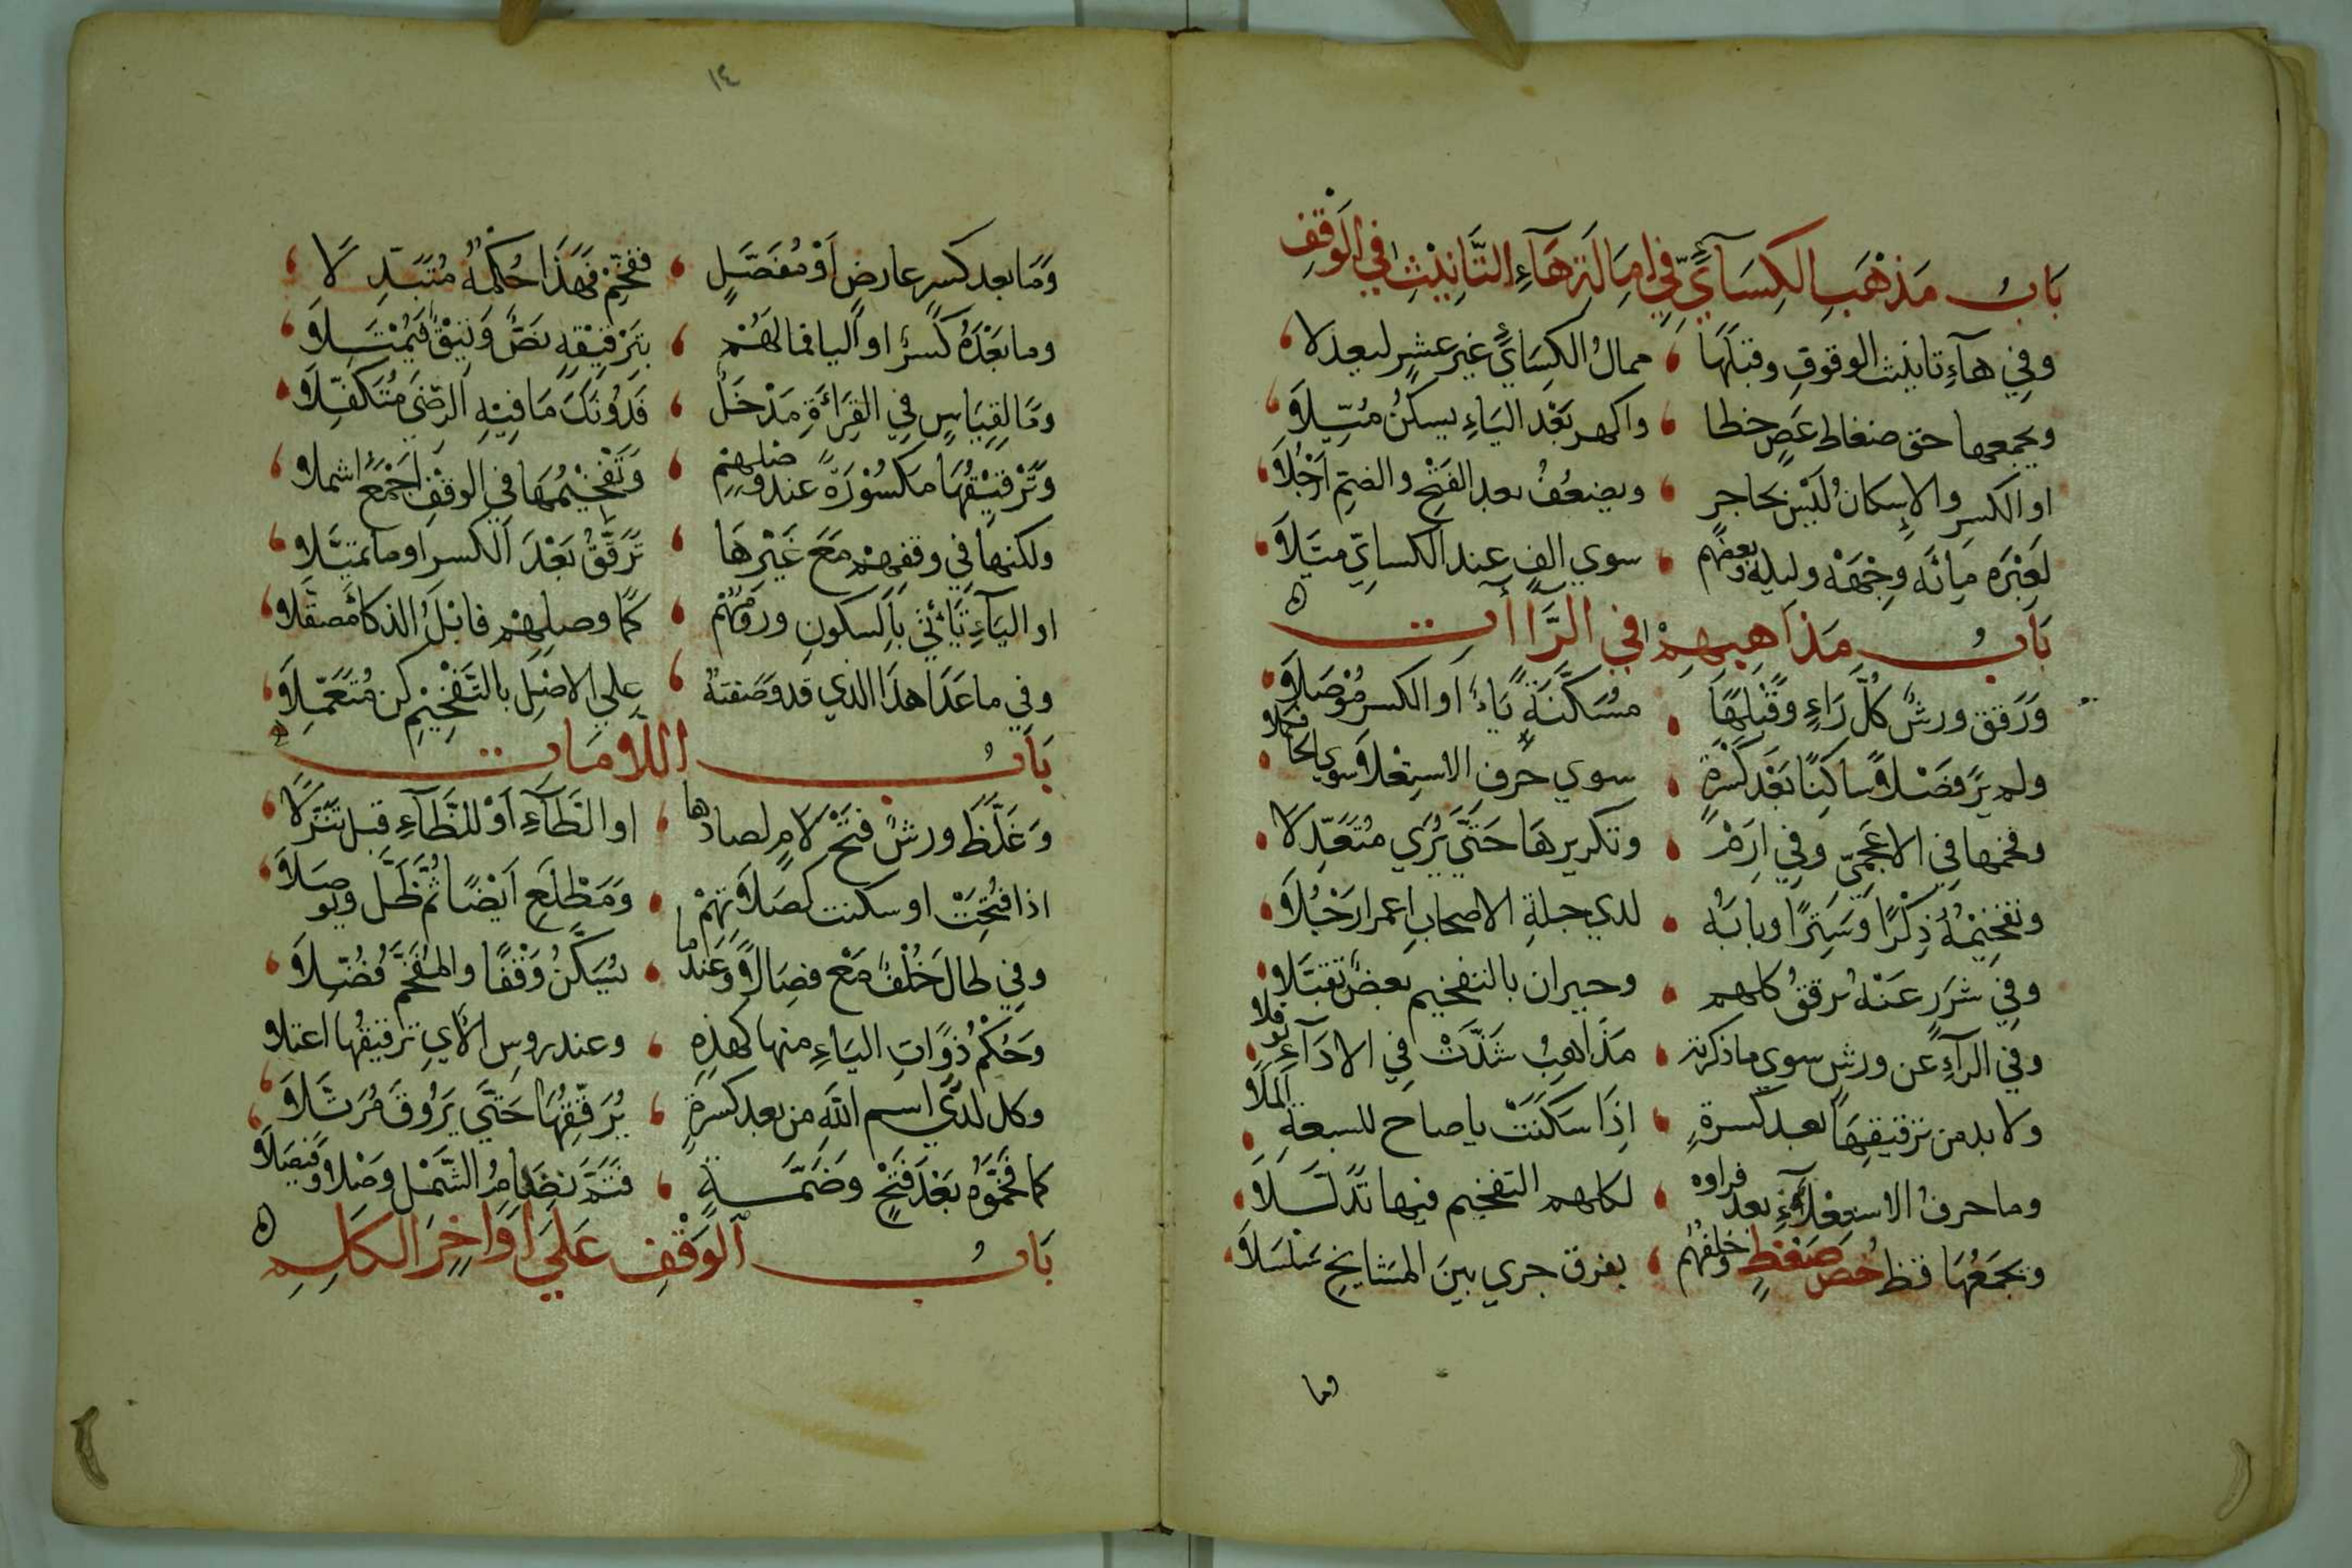 بَابُ مَذْهَبِ الكِسَآئِيِّ فِي اِمَالَةِ هَآءِ التَّانِيْثِ فِي الوَقْفِ
وفِي هآءِ تانيث الوقوفِ وقبلَهَا ، ممالُ الكِسَائِيْ غيرَ عشرٍ ليعدلا
ويجمعها حق ضغاط عَصٍ خظا ، واكهر بَعْدَ اليَاءِ يسكنُ مُيِّلَا
او الكسرِ والاِسكانُ لَيْسَ بحَاجِزٍ ، ويضعُفُ بعد الفَتْحِ والضمِّ اَرْجُلَا
لَعِبْرَه مِائَه وِجْهَهْ وليكه وبعضهم ، سوي الفٍ عند الكسائِيِّ مَيَّلَا
بَابُ مَذاهِبِهِمْ فِي الرَّاآت
وَرَقق ورشٌ كُلَّ رَاءٍ وَقَبْلَهَا ، مسَكَّنَةً يَاءٌ او الكسر مُوْصَلَا
ولم يَرَ فَصْلًا سَاكنًا بَعْدَ كَسْرَةٍ ، سوي حَرفِ الاستِعْلَا سوي الخا فكملا
وفخمها فِي الاعجميّ وفِي اِرَمْ ، وتكريرهَا حَتَّي يُرَي مُتَعَدِّلَا
وتفخِيْمُهُ ذِكْرًا وَسِتْرًا وبابَهُ ، لدي جلةِ الاصحابِ اعمر ارْحُلَا
وفِي شَرَرٍ عَنْهُ يُرققُ كلهم ، وحيران بالتفخيم بعضٌ تقبَّلَا
وفي الرآءِ عن ورشٍ سوي ما ذكرته ، مَذَاهِبُ شَذَّتْ فِي الادَآءِ توقلا
ولا بد من ترقيقِهَا بعد كسرةٍ ، اِذَا سَكَنَتْ يا صاح للسبعةِ الملَا
وما حرفُ الاستعْلَآءِ بعد فراوه ، لكلهم التفخيم فيها تذلَّلَا
ويجمَعُهَا قظ خُصَّ ضَغْطٍ وخلفهُم ، بفرق جري بينَ المشايخِ سَلْسَلَا
وما
١٤
وَمَا بعد كسرٍ عارضٍ اَوْ مُفَصَّلٍ ، ففخِّمْ فهَذَا حُكمُهُ مُتبَذِّلَا
وما بَعْدَهُ كسرٌ او اليا فما لَهُمْ ، بِتَرْقِيْقِهِ نَصٌّ وَثِيْقٌ فَيَمْثُلَا
وَمَا لِقِيَاسٍ فِي القِرَاءَةِ مَدْخَلٌ ، فَدُونَكَ مَا فِيْهِ الرِّضَي مُتَكَفِّلَا
وَتَرْقِيْقُهَا مكسُوْرَةً عند وَصْلِهِمْ ، وَتَفْخِيْمُهَا فِي الوقفِ اجْمَعُ اشملا
ولكنها فِي وقفِهِمْ مَعَ غَيْرِهَا ، تُرَقَّقُ بَعْدَ الكسر او ما تميَّلا
او اليَآءِ تَأْتِي بالسكونِ وروْمُهُمْ ، كما وصلِهِمْ فابْلُ الذكا مُصقَّلا
وفِي ما عَدَا هذا الذي قد وَصَفتُهُ ، علي الاصْلِ بالتَّفْخِيْمِ كن مُتَعَمِّلَا
بَابُ اللَّامَات
وَغَلَّظَ ورشٌ فتْحَ لامٍ لصادها ، او الطَآءِ اَوْ للظَآءِ قبل تنَزُّلَا
اذا فُتِحَتْ او سكنت كصَلَاتِهِمْ ، وَمَطْلَعِ اَيْضًا ثُمَّ ظَلَّ ويوصَلَا
وفِي طالَ خُلْفٌ مَعْ فِصَالًا وَعِنْدَما ، يُسَكَّنُ وَقْفًا والمُفَخَّمُ فُضِّلَا
وَحُكْمُ ذَوَاتِ اليَاءِ منها كهذِهِ ، وعند روسِ الآيِ ترقيقُها اعتلا
وكل لدَي اسم اللَّهِ من بعد كسرَةٍ ، يُرَقِّقُهَا حَتَّي يَرُوقَ مُرَتَّلَا
كما فَخَّمُوْه بَعْدَ فَتْحٍ وَضَمَّةٍ ، فَتَمَّ نِظَامُ الشَّمْلِ وَصْلًا وفَيْصَلَا
بَابُ الوَقْفِ عَلَي اَوَاخِرِ الكَلِمِ